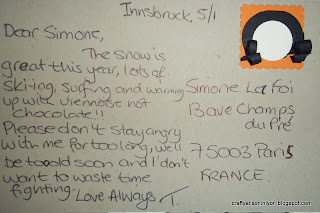 Innsbruck, 5/1
Dear Simone,
The snow is
great this year, lots of
skiing, surfing and warming
up with viennese hot
chocolate!!
Please don't stay angry
with me for too long, we'll
be too old soon and I don't
want to waste time
fighting. Love Always T.
Simone La Foi
13 ave Champs
du Pré
75003 Paris
FRANCE.
craftyalisoninlyon.blogspot.com